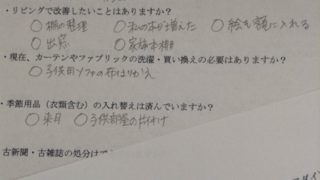 ・リビングで改善したいことはありますか？
○棚の整理 ○私の本が増えた ○絵を額に入れる
○出窓 ○家族本棚
・現在、カーテンやファブリックの洗濯・買い換えの必要はありますか？
○子供用ソファの布はりかえ
・季節用品（衣類含む）の入れ替えは済んでいますか？
○来月 ○子供部屋の片付け
古新聞・古雑誌の処分は